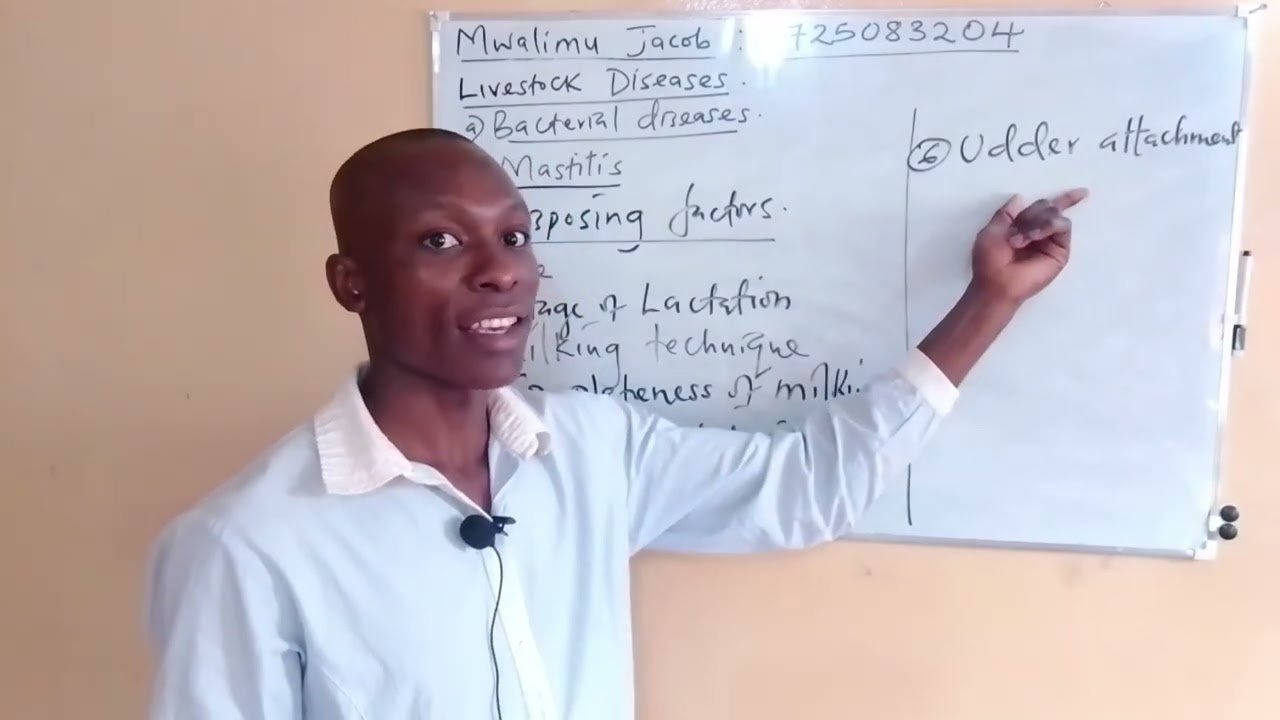 Mwalimu Jacob : 725083204
Livestock Diseases.
a) Bacterial diseases.
Mastitis
sposing factors.
age of Lactation
ilking technique
pleteness of milki
6 Udder attachment